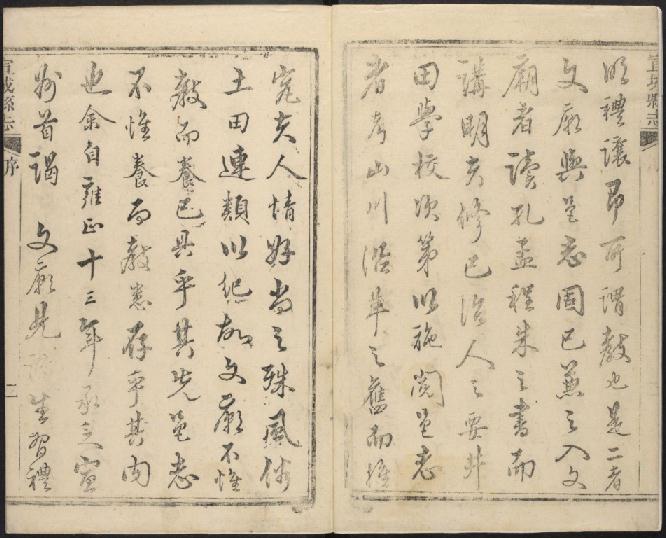 宣城縣志
明禮讓即可謂教也是二者
文廟與邑志固已兼之入文
廟者讀孔孟程朱之書而
講明夫修已治人之要井
田學校次第以施閱邑志
者考山川沿革之舊而推
究夫人情好尚之殊風俗
土田連類以紀故文廟不惟
教而養已具乎其先邑志
不惟養而教悉存乎其內
也余自雍正十三年承乏宣
首謁 文廟見諸生習禮
宣城縣志
序
二